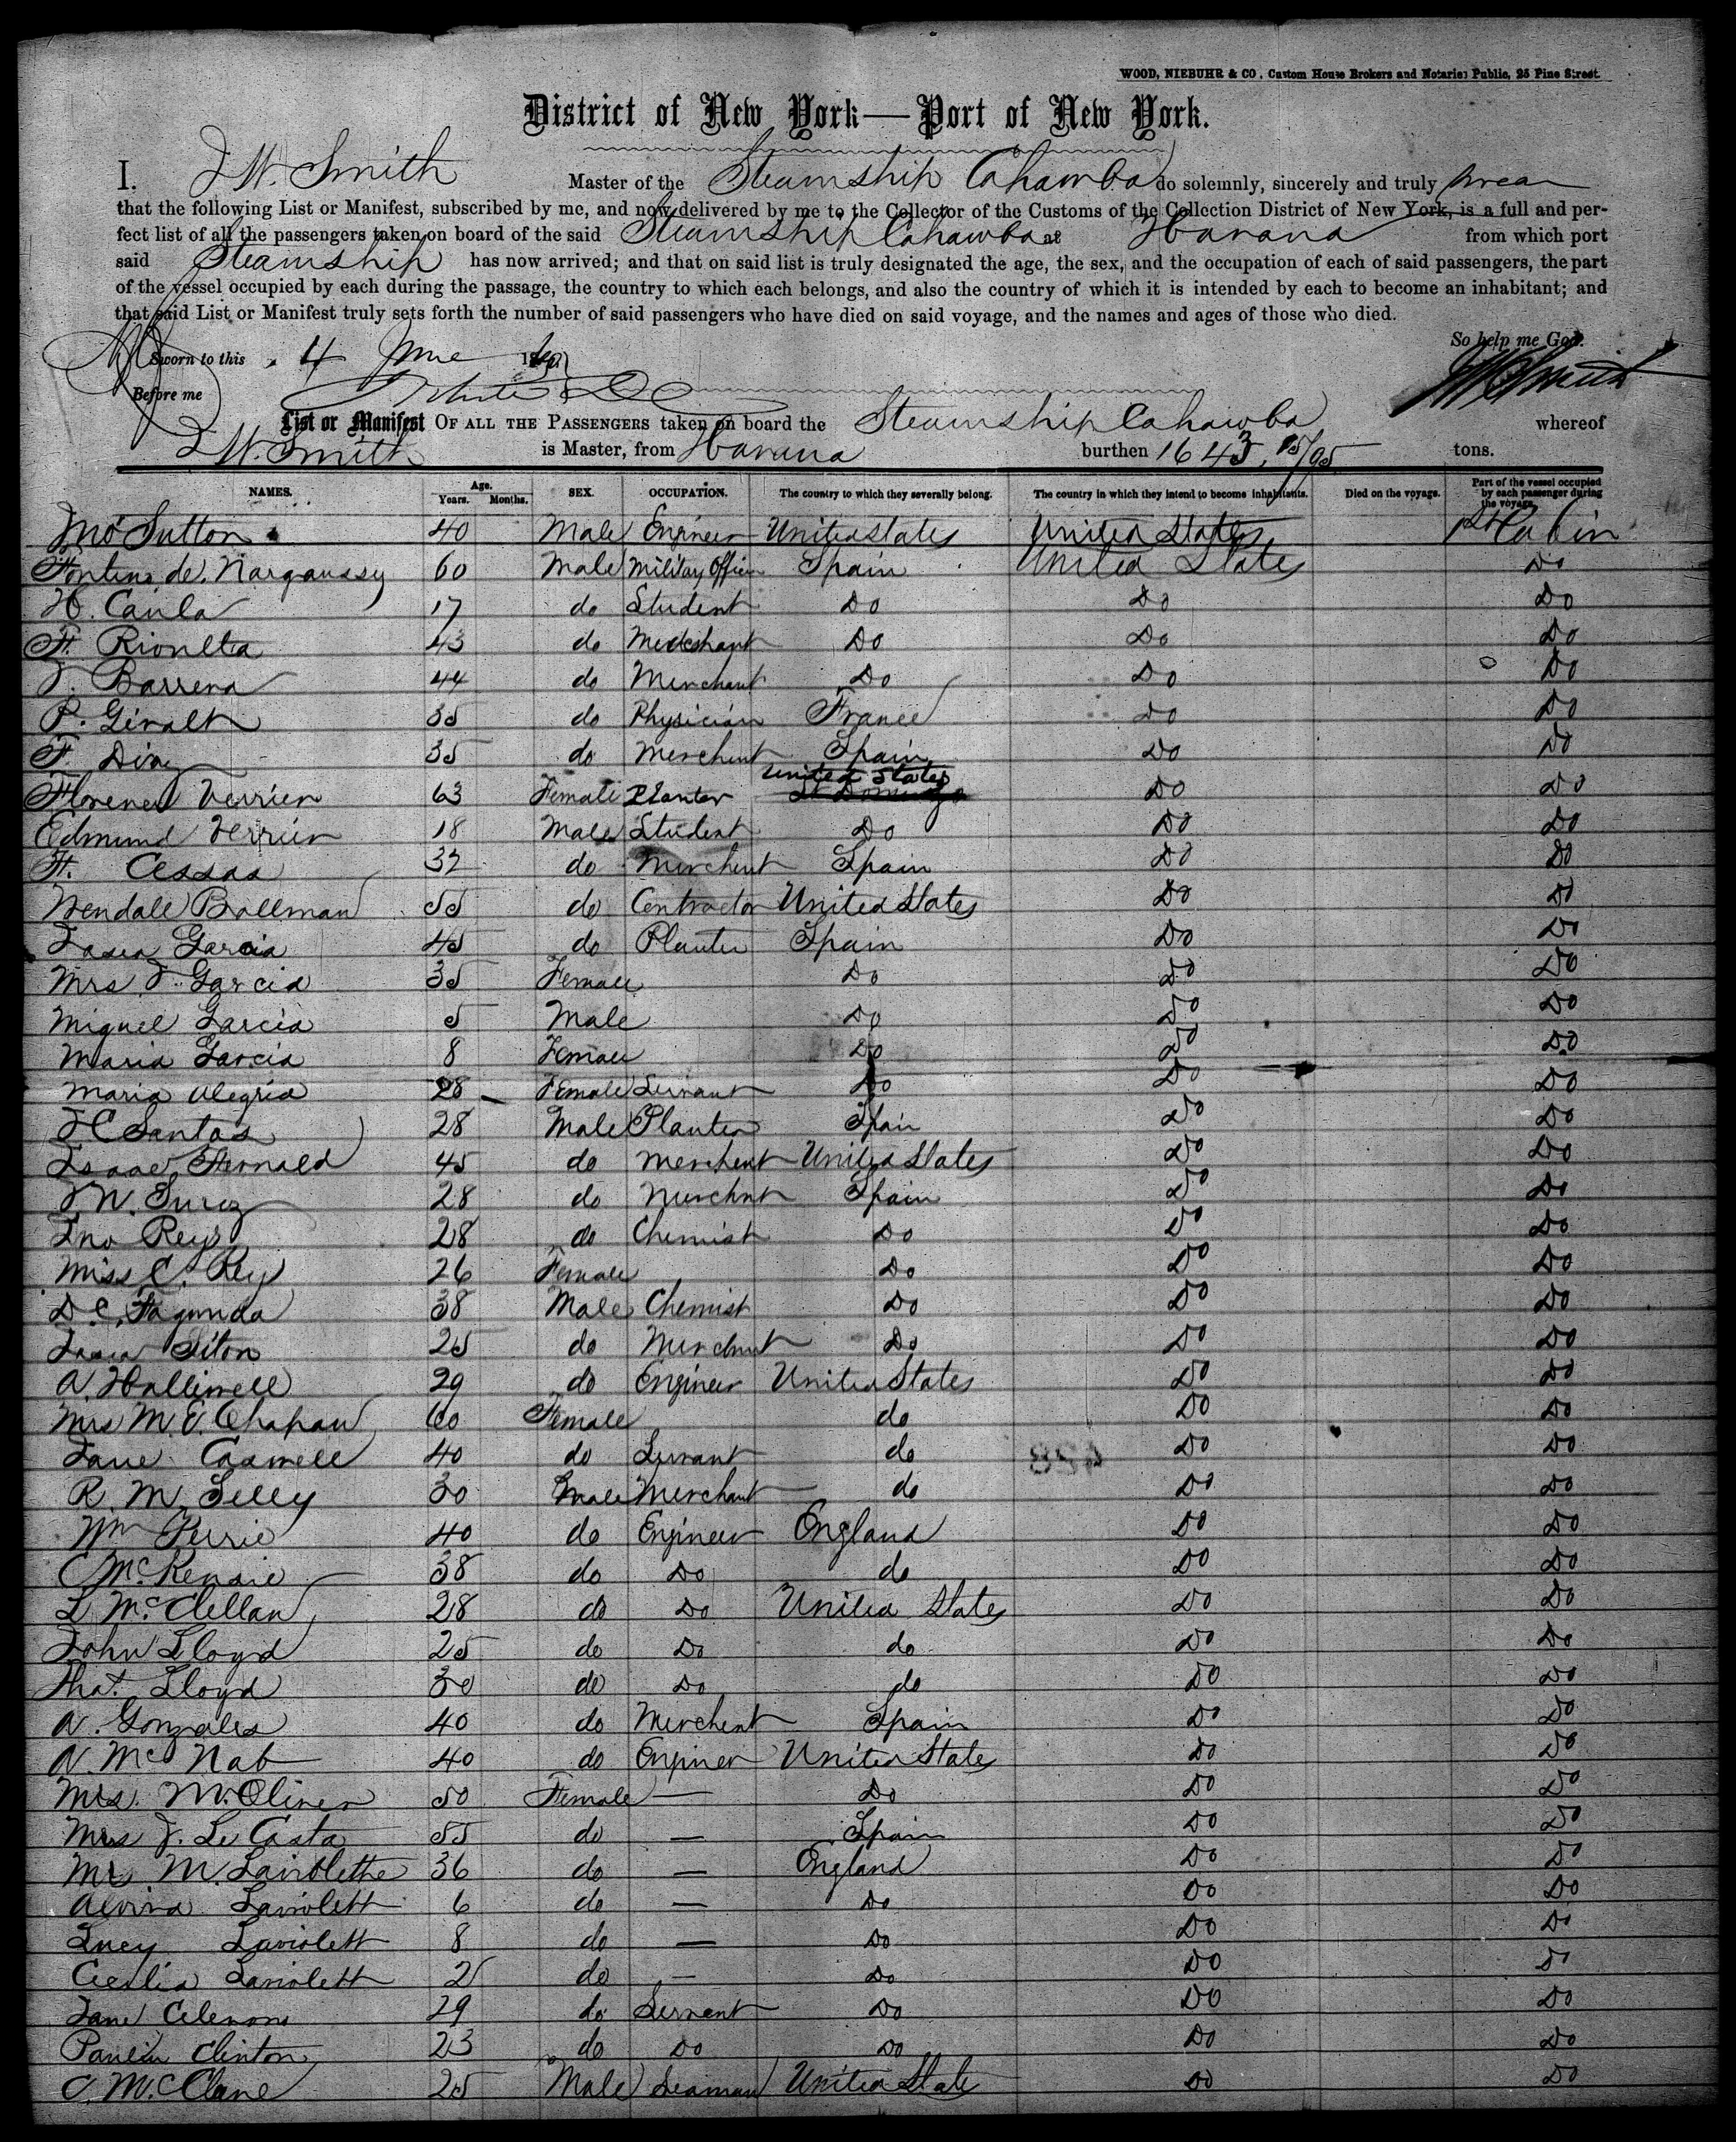 WOOD, NIEBUHR & CO, Custom House Brokers and Notaries Public, 25 Pine Street.
District of New York—Port of New York.
I. J W. Smith Master of the Steamship Cahawba do solemnly, sincerely and truly swear
that the following List or Manifest, subscribed by me, and now delivered by me to the Collector of the Customs of the Collection District of New York, is a full and per-
fect list of all the passengers taken on board of the said Steamship Cahawba at Havana from which port
said Steamship has now arrived; and that on said list is truly designated the age, the sex, and the occupation of each of said passengers, the part
of the vessel occupied by each during the passage, the country to which each belongs, and also the country of which it is intended by each to become an inhabitant; and
that said List or Manifest truly sets forth the number of said passengers who have died on said voyage, and the names and ages of those who died.
So help me God.
Sworn to this 4 June 18
JW Smith
Before me
List or Manifest OF ALL THE PASSENGERS taken on board the Steamship Cahawba whereof
J W. Smith is Master, from Havana burthen 1643, 15/95 tons.
NAMES. Age. Years. Months. SEX. OCCUPATION. The country to which they severally belong. The country in which they intend to become inhabitants. Died on the voyage. Part of the vessel occupied by each passenger during the voyage.
Jno Sutton 40 Male Engineer United States United States 1st Cabin
de 60 Male Military Officer Spain United States Do
H. Caula 17 do Student Do Do Do
F. Rionlta 43 do Medeshant Do Do Do
J. Barrena 44 do Merchant Do Do Do
P. Giralt 35 do Physician France Do Do
F. Diaz 35 do Merchent Spain Do Do
Florence Verrier 63 Female Planter United States St Domingo Do Do
Edmund Verrier 18 Male Student Do Do Do
F. Cessas 32 do Merchent Spain Do Do
Wendall Bollman 55 do Contractor United States Do Do
Garcia 45 do Planter Spain Do Do
Mrs J. Garcia 35 Female Do Do Do
Miguel Garcia 5 Male Do Do Do
Maria Garcia 8 Female Do Do Do
Maria Alegria 28 Female Servant Do Do Do
J C Santos 28 Male Planter Spain Do Do
Isaac Fernald 45 do Merchent United States Do Do
J. W. 28 do Merchnt Spain Do Do
Jno Reys 28 do Chemist Do Do Do
Miss C. Rey 26 Female Do Do Do
D. C. Fagunda 38 Male Chemist Do Do Do
Siton 25 do Merchant Do Do Do
A. Halliwell 29 do Engineer United States Do Do
Mrs M. E. Chapau 60 Female do Do Do
Jane Caswell 40 do Servant do Do Do
R. M. Selly 30 Male Merchant do Do Do
Wm Perrie 40 do Engineer England Do Do
C McKensie 38 do Do do Do Do
L McClellan 28 do Do United States Do Do
John Lloyd 25 do Do do Do Do
Thos. Lloyd 30 do Do do Do Do
A. Gonzales 40 do Merchent Spain Do Do
A. Mc Nab 40 do Enginer United States Do Do
Mrs. M. Oliver 50 Female — Do Do Do
Mrs J. Le Casta 55 do — Spain Do Do
Mrs M. Laviolethe 36 do — England Do Do
Alvina Laviolett 6 do — Do Do Do
Lucy Laviolett 8 do — Do Do Do
Cecilia Laviolett 2 do — Do Do Do
Jane Clemons 29 do Servant Do Do Do
Clinton 23 do Do Do Do Do
C. McClane 25 Male Seaman United State Do Do